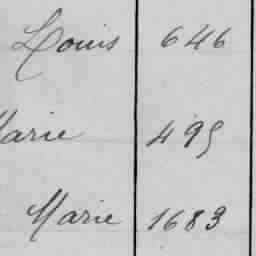 Louis 646
Marie 495
Marie 1683